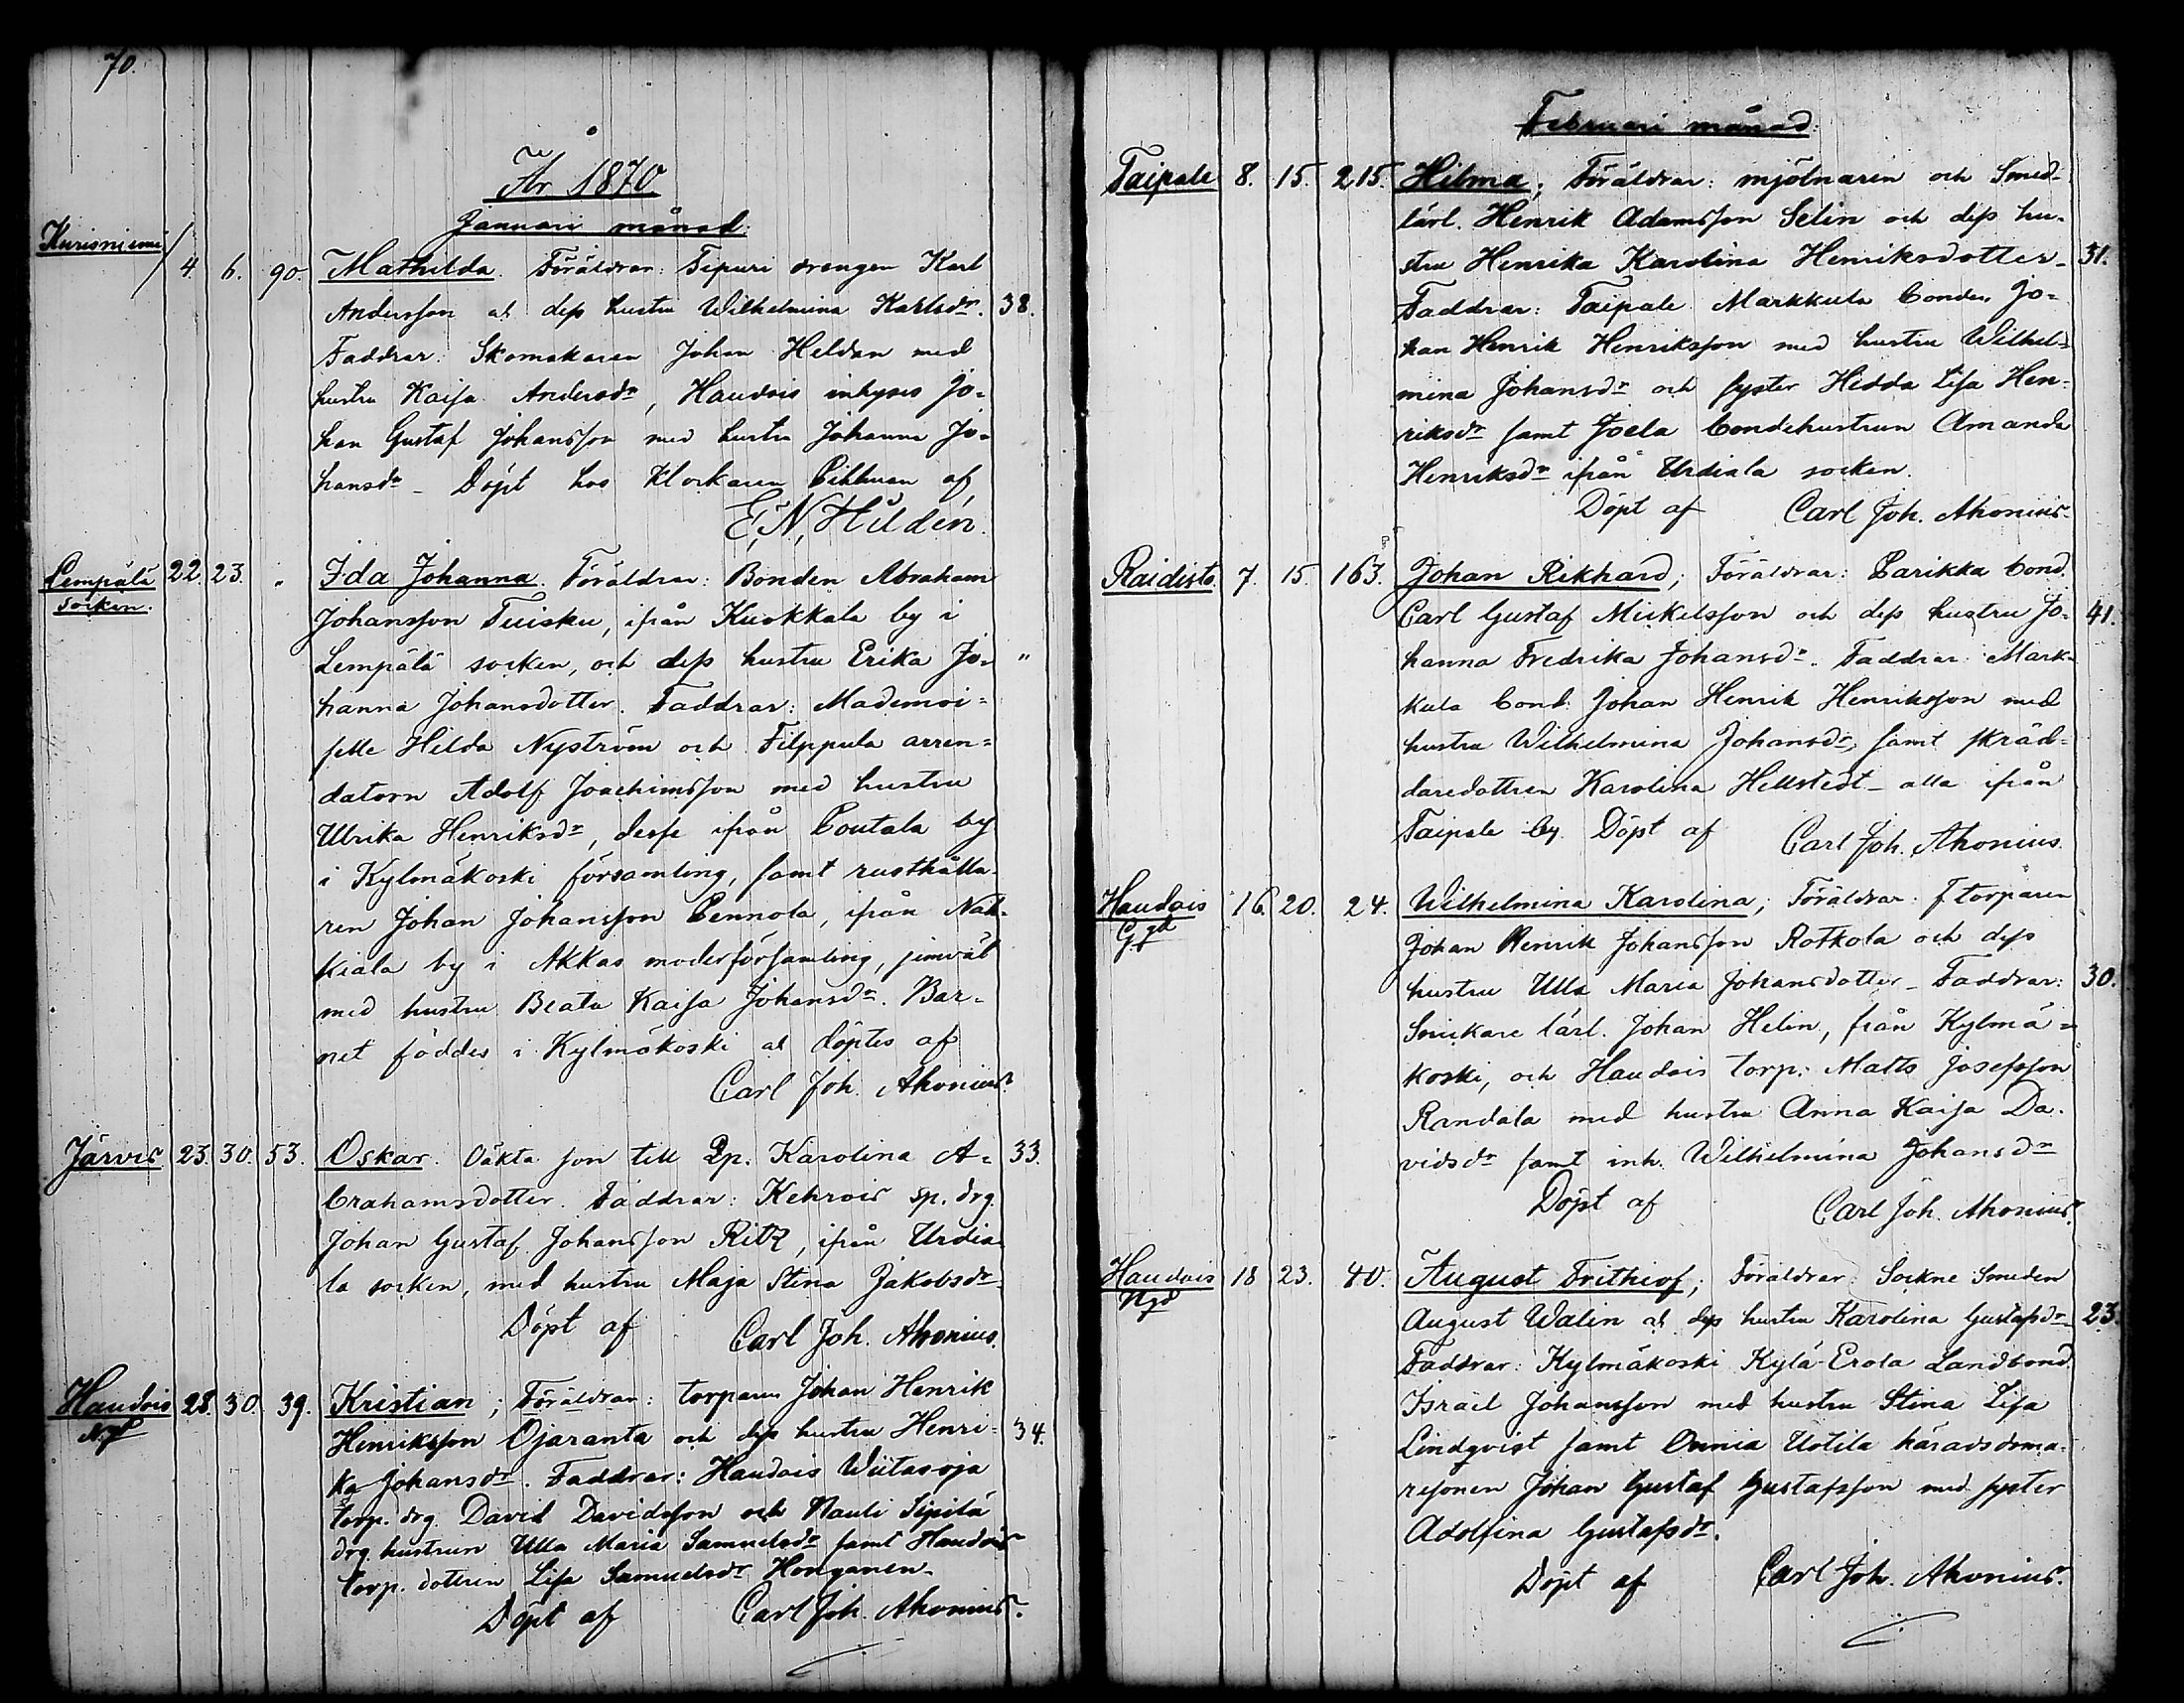 70.
År 1870
Januari månad.
Kurisniemi 4. 6. 90. Mathilda. Föräldrar: Sipuri drengen Karl
Andersson oh dess hustru Wilhelmina Karlsdr. 38.
Faddrar: Skomakaren Johan Heldan med
hustru Kaisa Andersdr, Haudois inhyses Jo=
han Gustaf Johansson med hustru Johanna Jo=
hansdr – Döpt hos Klockaren Pihlman af
E, N, Hildén.
Lempälä socken. 22. 23. " Ida Johanna. Föräldrar: Bonden Abraham
Johansson Tuisku, ifrån Kuokkala by i
Lempälä socken, och dess hustru Erika Jo= "
hanna Johansdotter. Faddrar: Mademoi=
selle Hilda Nyström och Filppula arren=
datorn Adolf Joachimsson med hustru
Ulrika Henriksdr, desse ifrån Pontala by
i Kylmäkoski församling, samt rusthålla=
ren Johan Johansson Pennola, ifrån Nah=
kiala by i Akkas moderförsamling, jemväl
med hustru Beata Kaisa Johansdr. Bar=
net föddes i Kylmäkoski oh döptes af
Carl Joh. Ahonius.
Järvis 23. 30. 53. Oskar. Oäkta son till Pp. Karolina A= 33.
brahamsdotter. Faddrar: Kehrois sp. drg.
Johan Gustaf Johansson Ritz, ifrån Urdia=
la socken, med hustru Maja Stina Jakobsdr.
Döpt af Carl Joh. Ahonius.
Haudois Ngd 28. 30. 39. Kristian; Föräldrar: torparen Johan Henrik
Henriksson Ojaranta och dess hustru Henri= 34.
ka Johansdr. Faddrar: Haudois Wiitasoja
torp. drg. David Davidsson och Nauli Sipilä
drg. hustrun Ulla Maria Samuelsdr samt Haudois
torp. dottren Lisa Samuelsdr Honganen.
Döpt af Carl Joh. Ahonius.
Februari månad.
Taipale 8. 15. 215. Hilma; Föräldrar: mjölnaren och Smed=
lärl. Henrik Adamsson Selin och dess hu=
stru Henrika Karolina Henriksdotter. 31.
Faddrar: Taipale Markkula bonden Jo=
han Henrik Henriksson med hustru Wilhel=
mina Johansdr och syster Hedda Lisa Hen=
riksdr samt Joela bondehustrun Amanda
Henriksdr ifrån Urdiala socken.
Döpt af Carl Joh. Ahonius.
Raidisto. 7. 15. 163. Johan Rikhard; Föräldrar: Parikka bond.
Carl Gustaf Mickelsson och dess hustru Jo= 41.
hanna Fredrika Johansdr. Faddrar: Mark=
kula bond. Johan Henrik Henriksson med
hustru Wilhelmina Johansdr, samt skräd=
daredottren Karolina Hellstedt – alla ifrån
Taipale by. Döpt af Carl Joh. Ahonius.
Haudois Ggd 16. 20. 24. Wilhelmina Karolina; Föräldrar: torparen
Johan Henrik Johansson Rotkola och dess
hustru Ulla Maria Johansdotter – Faddrar: 30.
Snickare lärl. Johan Helin, från Kylmä=
koski, och Haudois torp. Matts Josefsson
Randala med hustru Anna Kaisa Da=
vidsdr samt inh. Wilhelmina Johansdr
Döpt af Carl Joh. Ahonius.
Haudois Ngd 18 23. 40. August Frithiof; Föräldrar: Sockne Smeden
August Walin oh dess hustru Karolina Gustafsdr. 23.
Faddrar: Kylmäkoski Kylä-Erola Landbond.
Israël Johansson med hustru Stina Lisa
Lindqvist samt Onnia Uotila häradsdoma=
resonen Johan Gustaf Gustafsson med syster
Adolfina Gustafsdr.
Döpt af Carl Joh. Ahonius.